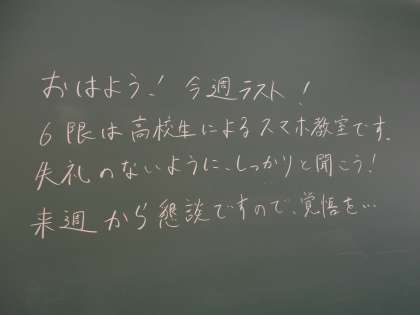 おはよう! 今週ラスト!
6限は高校生によるスマホ教室です.
失礼のないように、しっかりと聞こう!
来週から懇談ですので、覚悟を…